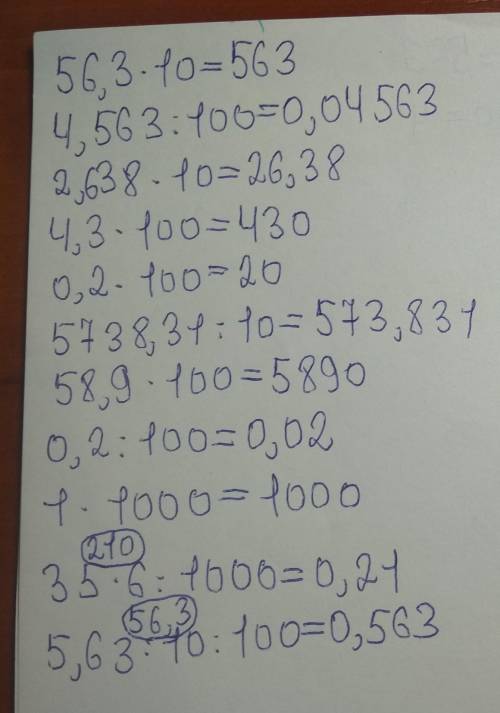 56,3·10=563
4,563:100=0,04563
2,638·10=26,38
4,3·100=430
0,2·100=20
5738,31:10=573,831
58,9·100=5890
0,2:100=0,02
1·1000=1000
210
35·6:1000=0,21
56,3
5,63·10:100=0,563